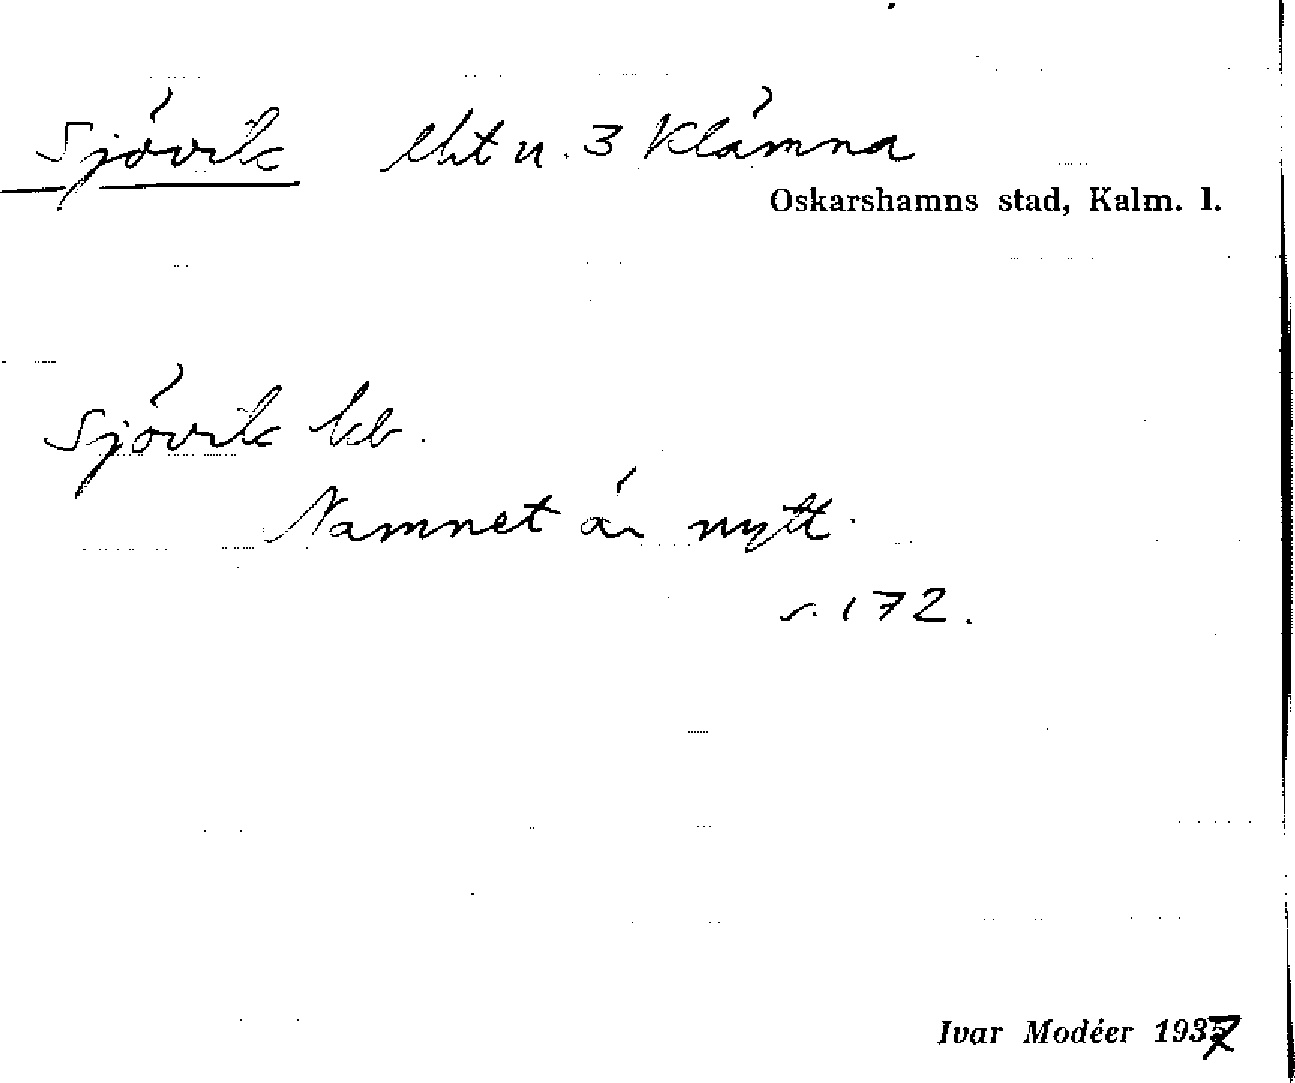 Sjövik lht u. 3 Klämna
Oskarshamns stad, Kalm. l.
Sjövik kb.
Namnet är nytt.
s. 172.
Ivar Modéer 1937